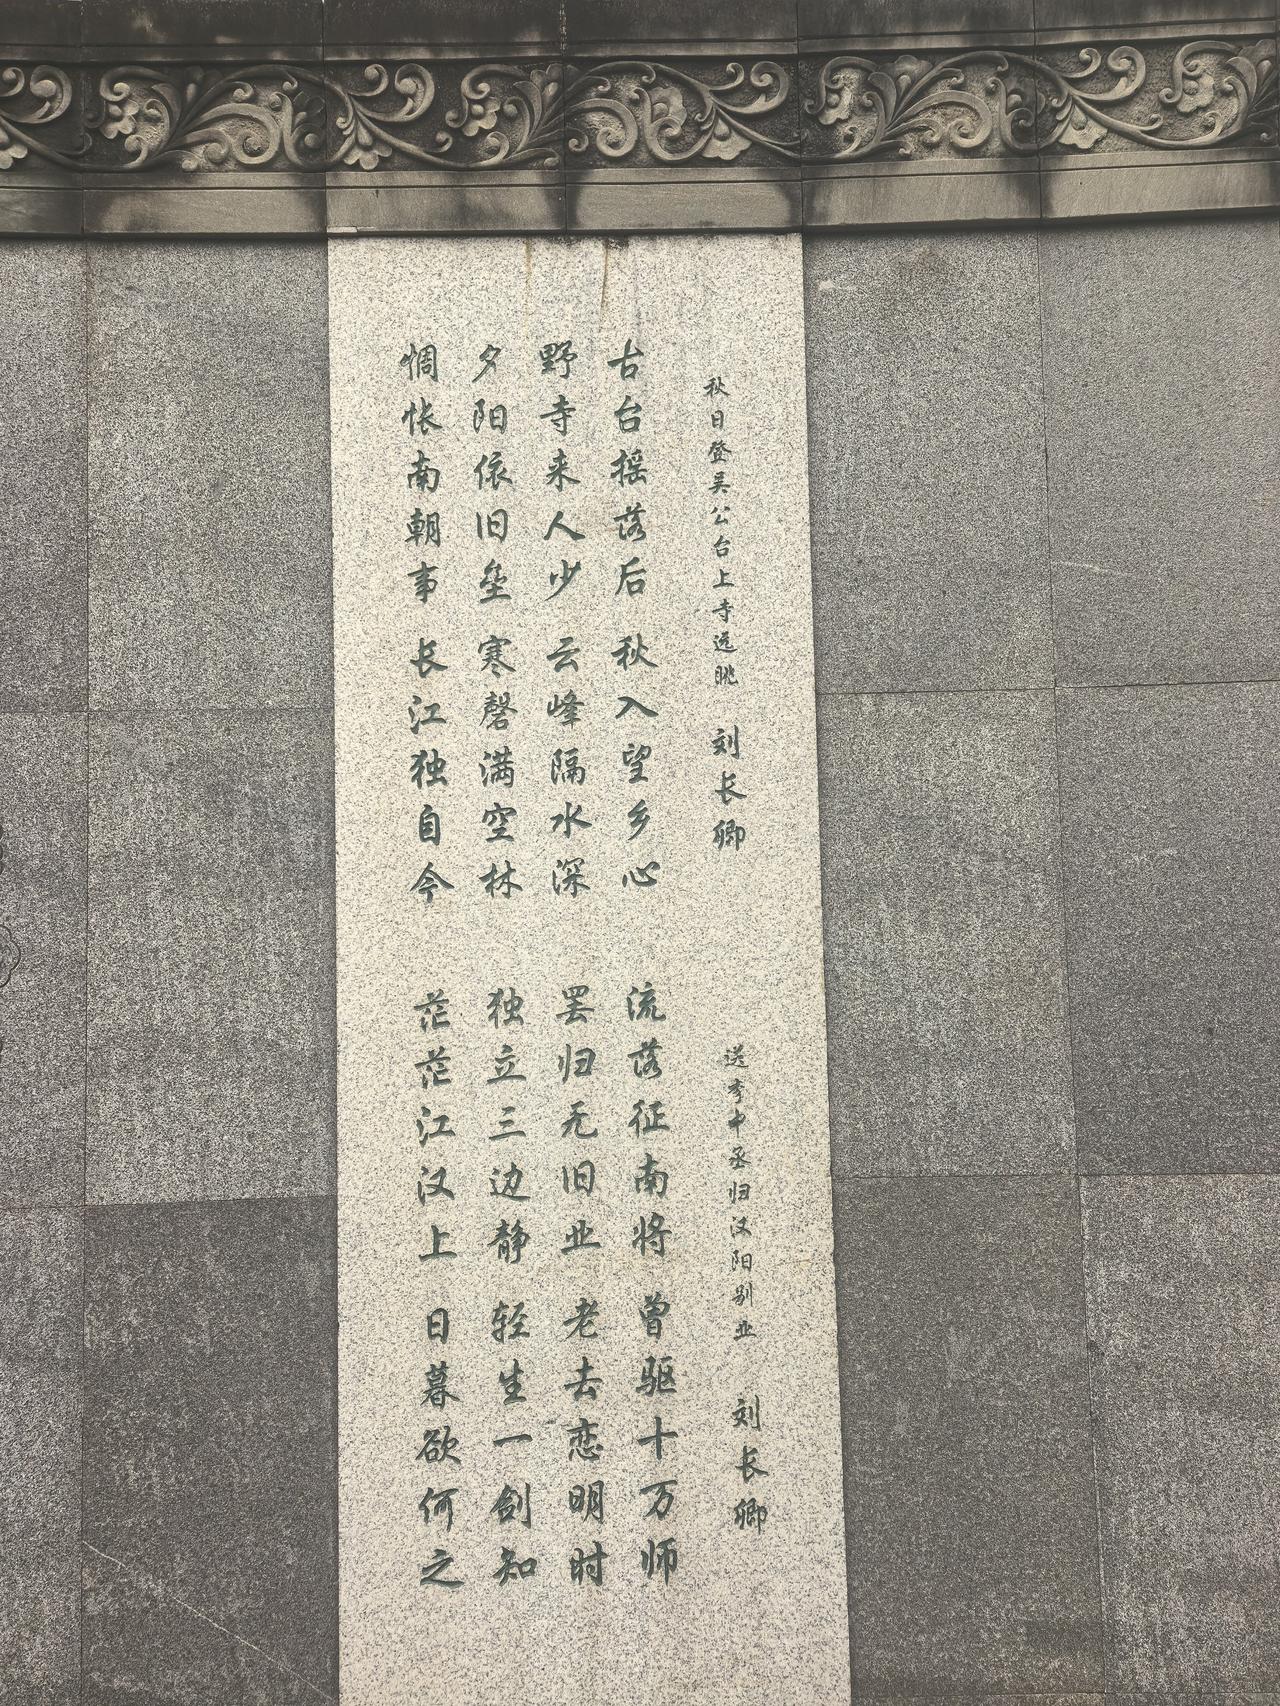 秋日登吴公台上寺远眺 刘长卿
古台摇落后 秋入望乡心
野寺来人少 云峰隔水深
夕阳依旧垒 寒磬满空林
惆怅南朝事 长江独自今
送李中丞归汉阳别业 刘长卿
流落征南将 曾驱十万师
罢归无旧业 老去恋明时
独立三边静 轻生一剑知
茫茫江汉上 日暮欲何之